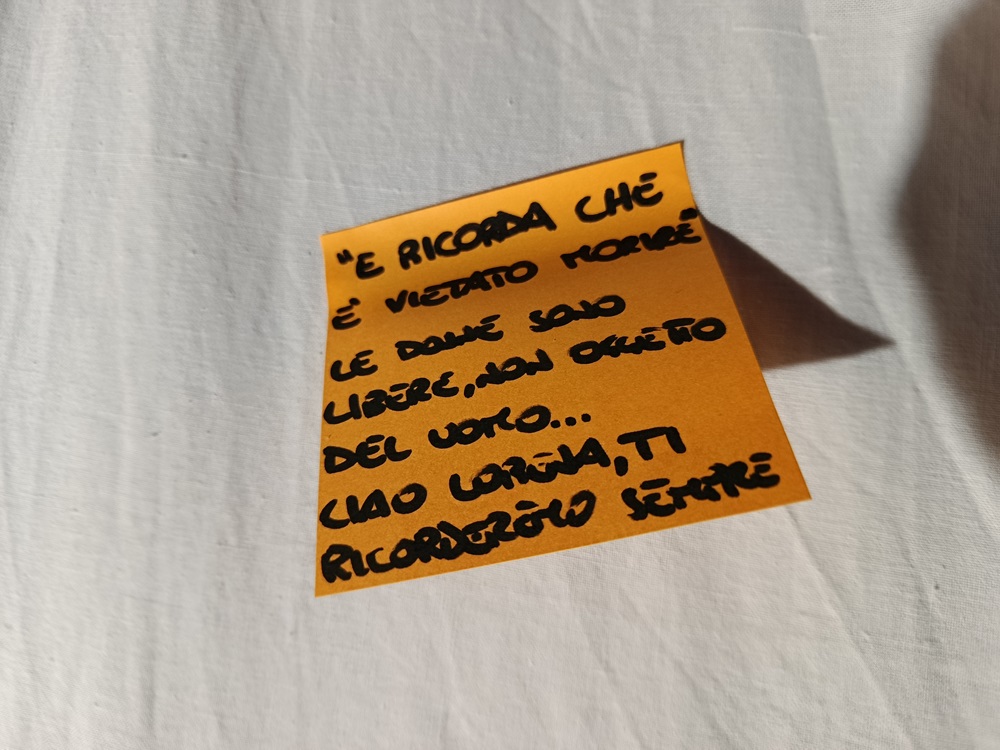 "E RICORDA CHE
E' VIETATO MORIRE"
LE DONNE SONO
LIBERE, NON OGGETTO
DEL UOMO...
CIAO LORENA, TI
RICORDEREMO SEMPRE